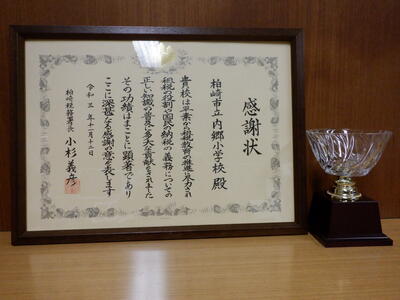 感謝状
柏崎市立内郷小学校 殿
貴校は平素から租税教育の推進に尽力され
租税の役割や国民の納税の義務についての
正しい知識の普及に多大な貢献をされました
その功績はまことに顕著であり
ここに深甚なる感謝の意を表します
令和三年十一月十二日
柏崎税務署長 小杉義彦